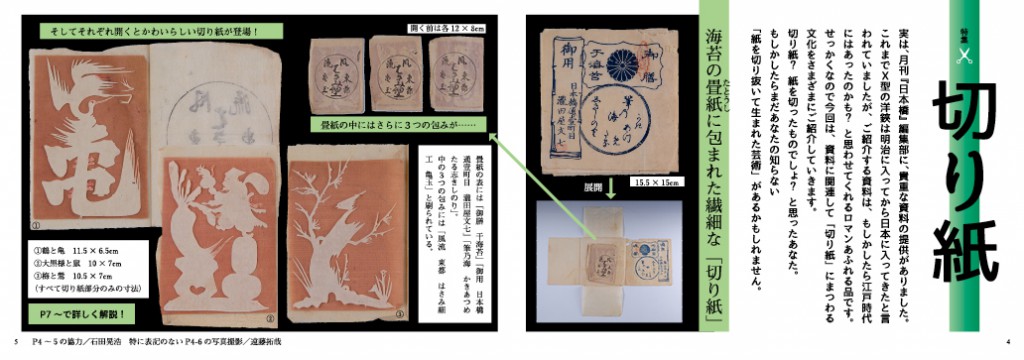 特集
切り紙
実は、月刊『日本橋』編集部に、貴重な資料の提供がありました。
これまでX型の洋鋏は明治に入ってから日本に入ってきたと言
われていましたが、ご紹介する資料は、もしかしたら江戸時代
にはあったのかも？と思わせてくれるロマンあふれる品です。
せっかくなので今回は、資料に関連して「切り紙」にまつわる
文化をさまざまにご紹介していきます。
切り紙？　紙を切ったものでしょ？と思ったあなた。
もしかしたらまだあなたの知らない
「紙を切り抜いて生まれた芸術」があるかもしれません。
海苔の畳紙に包まれた繊細な「切り紙」
たとうし
御膳
干海苔
御用
日本橋通壹町目
瀧田屋文七
筆乃海
かきあつめ
たる
志きしのり
展開
15.5 × 15cm
開く前は各12 × 8cm
風流
東都
はさみ細工
亀玉
畳紙の中にはさらに３つの包みが……
畳紙の表には「御膳　干海苔」「御用　日本橋
通壹町目　瀧田屋文七」「筆乃海　かきあつめ
たる志きしのり」、
中の３つの包みには「風流　東都　はさみ細
工　亀玉」と刷られている。
そしてそれぞれ開くとかわいらしい切り紙が登場！
①
②
③
①鶴と亀　11.5 × 6.5cm
②大黒様と鼠　10 × 7cm
③梅と鶯　10.5 × 7cm
（すべて切り紙部分のみの寸法）
P7 〜で詳しく解説！
5　P4 〜 5 の協力／石田晃浩　特に表記のない P4-6 の写真撮影／遠藤拓哉
4